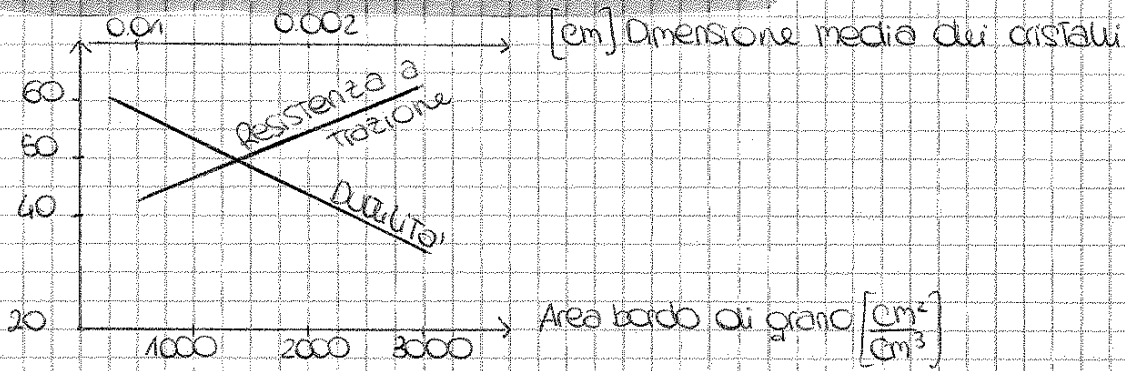 0.01 0.002 [cm] Dimensione media dei cristalli
60
50
40
20
Resistenza a
Trazione
Duttilità
1000 2000 3000 Area bordo di grano [cm²/cm³]